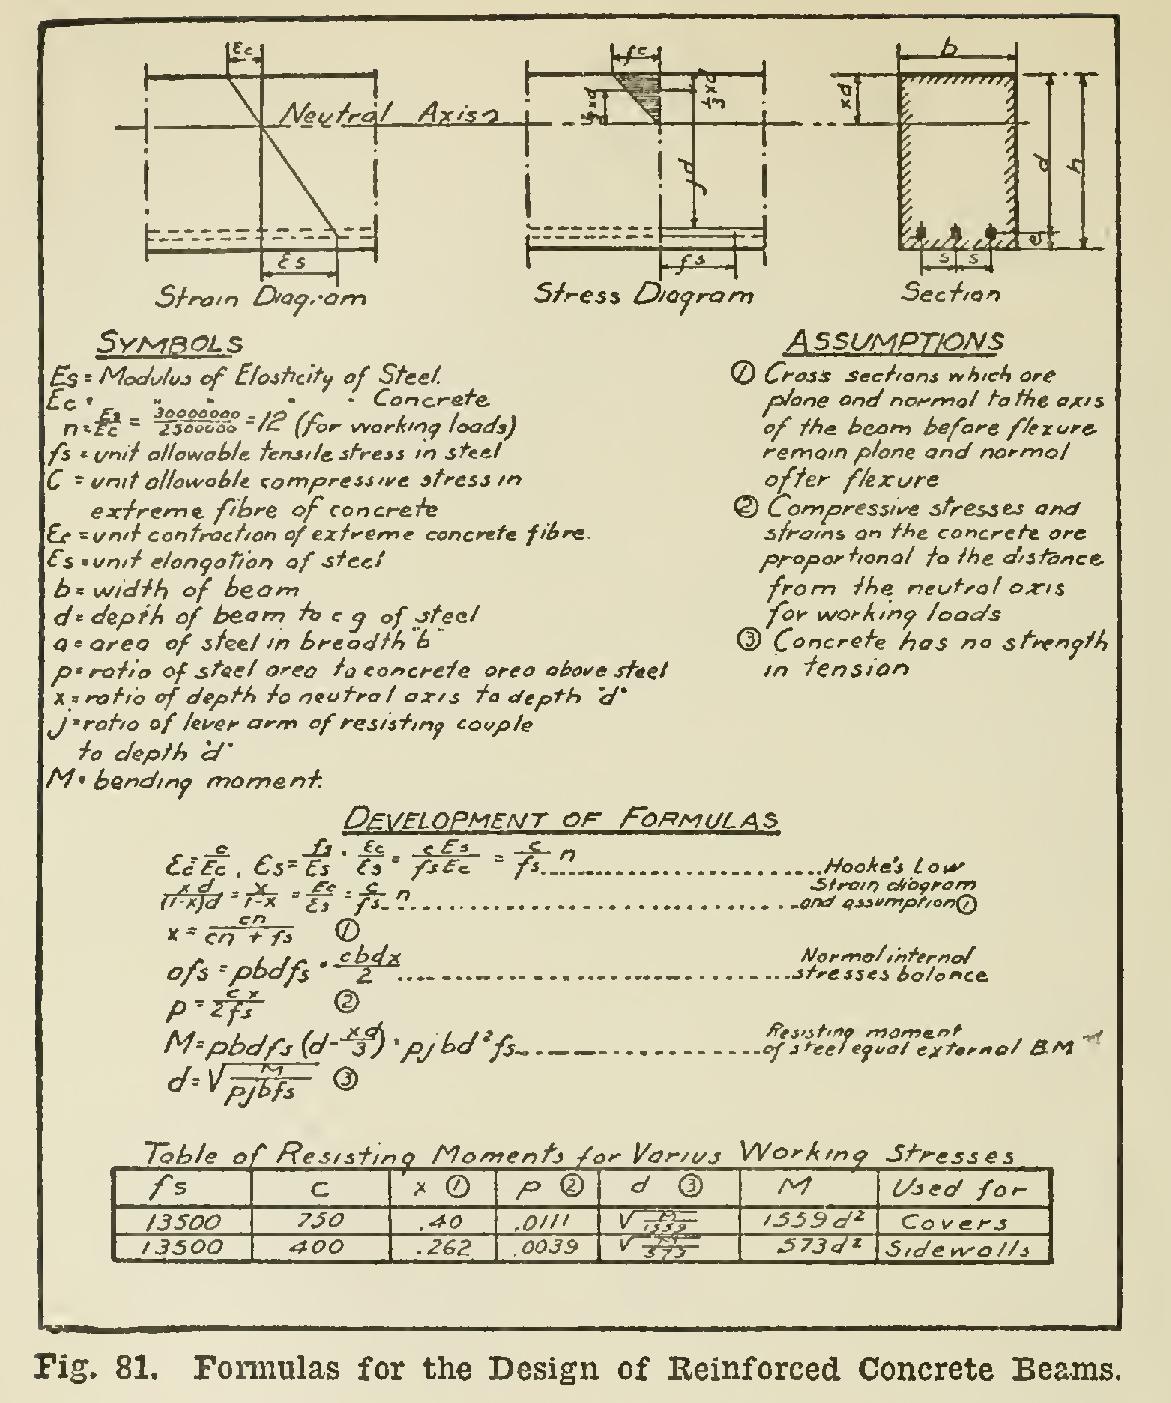 Ɛc
fc
b
Neutral Axis
⅔xd
⅓xd
xd
jd
d
h
e
Ɛs
fs
s s
Strain Diagram
Stress Diagram
Section
SYMBOLS
Es = Modulus of Elasticity of Steel.
Ec " " " " Concrete
n = Es/Ec = 30000000/2500000 = 12 (for working loads)
fs = unit allowable tensile stress in steel
C = unit allowable compressive stress in
extreme fibre of concrete
Ɛc = unit contraction of extreme concrete fibre.
Ɛs = unit elongation of steel
b = width of beam
d = depth of beam to c g of steel
a = area of steel in breadth "b"
p = ratio of steel area to concrete area above steel
x = ratio of depth to neutral axis to depth "d"
j = ratio of lever arm of resisting couple
to depth "d"
M = bending moment.
ASSUMPTIONS
① Cross sections which are
plane and normal to the axis
of the beam before flexure
remain plane and normal
after flexure
② Compressive stresses and
strains on the concrete are
proportional to the distance
from the neutral axis
for working loads
③ Concrete has no strength
in tension
DEVELOPMENT OF FORMULAS
Ɛc = c/Ec , Ɛs = fs/Es . Ɛc/Ɛs = c Es/fs Ec = c/fs n .......... Hooke's Law
xd/(1-x)d = x/1-x = Ɛc/Ɛs = c/fs n .......... Strain diagram and assumption ①
x = cn/cn + fs ①
afs = pbdfs = cbdx/2 .......... Normal internal stresses balance
p = c x/2fs ②
M = pbdfs (d - xd/3) = pjbd²fs .......... Resisting moment of steel equal external B.M
d = √M/pjbfs ③
Table of Resisting Moments for Varius Working Stresses
fs C x ① p ② d ③ M Used for
13500 750 .40 .0111 √M/1559 1559d² Covers
13500 400 .262 .0039 √M/573 573d² Sidewalls
Fig. 81. Formulas for the Design of Reinforced Concrete Beams.